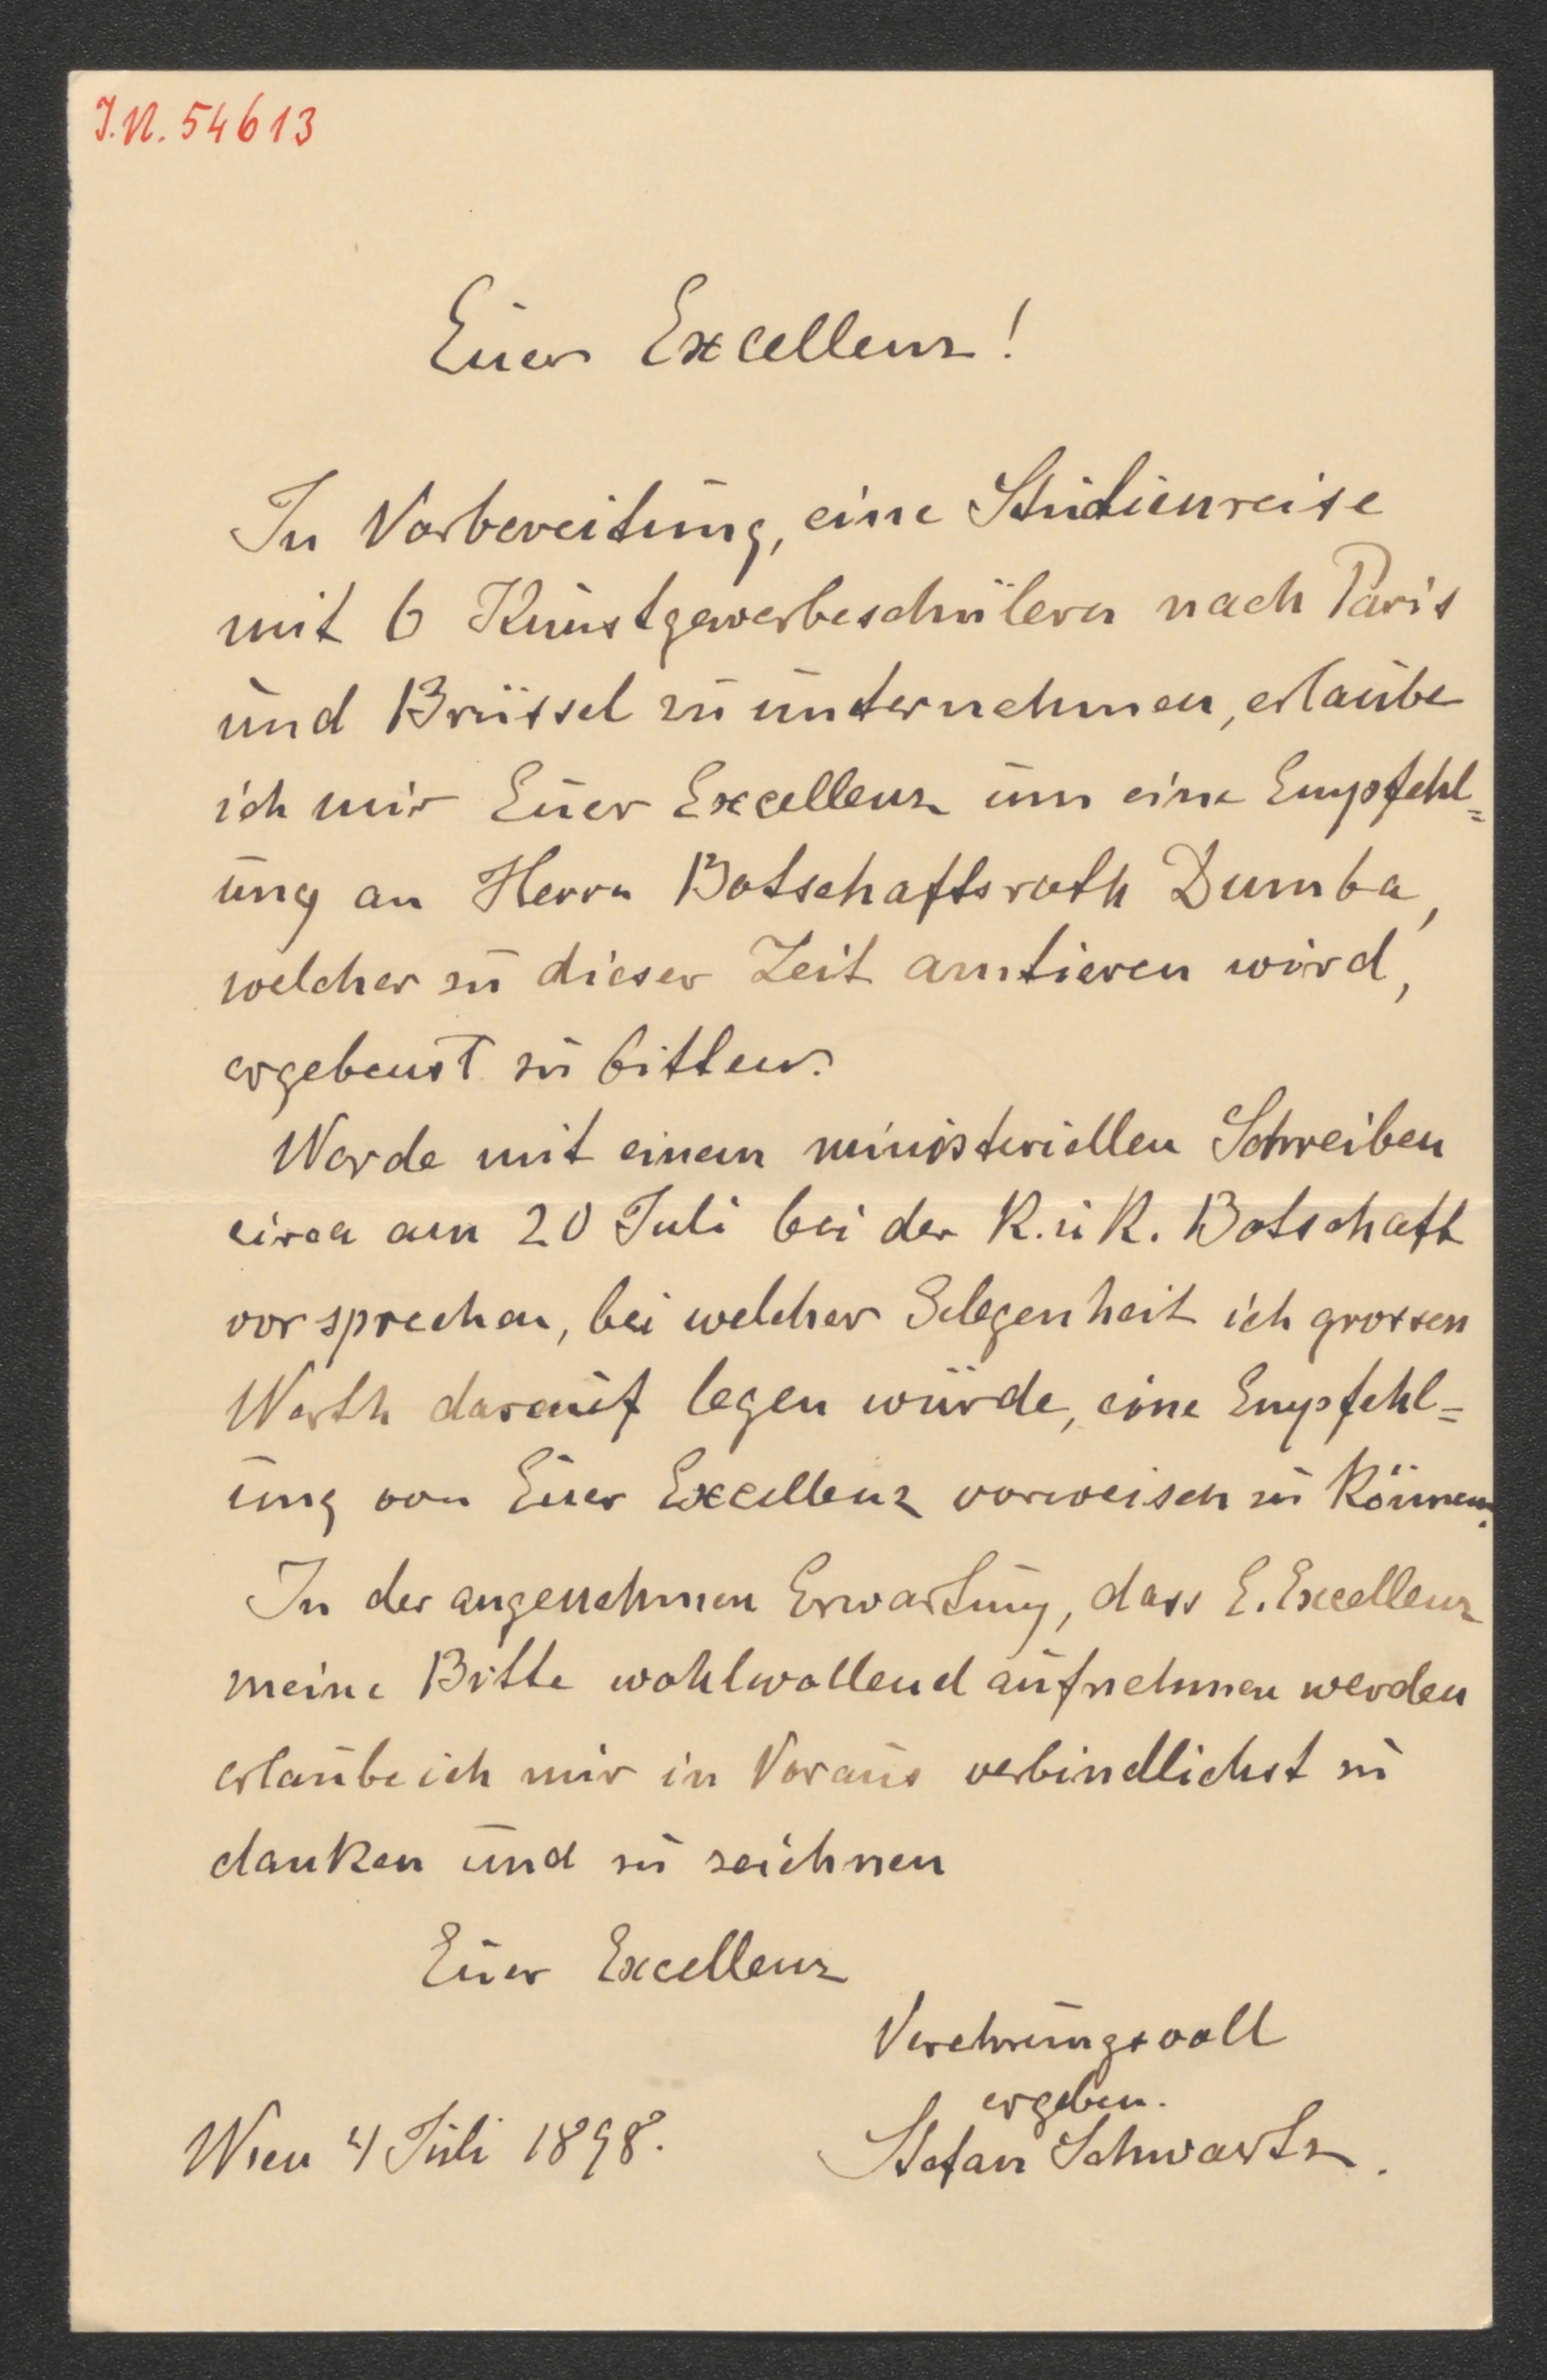 J.N. 54613
Euer Excellenz!
In Vorbereitung, eine Studienreise
mit 6 Kunstgewerbeschülern nach Paris
und Brüssel zu unternehmen, erlaube
ich mir Euer Excellenz um eine Empfehl=
ung an Herrn Botschaftsrath Dumba,
welcher zu dieser Zeit amtieren wird,
ergebenst zu bitten.
Werde mit einem ministeriellen Schreiben
circa am 20 Juli bei der K. u K. Botschaft
vorsprechen, bei welcher Gelegenheit ich grossen
Werth darauf legen würde, eine Empfehl=
ung von Euer Excellenz vorweisen zu können.
In der angenehmen Erwartung, dass E. Excellenz
meine Bitte wohlwollend aufnehmen werden
erlaube ich mir in Voraus verbindlichst zu
danken und zu zeichnen
Euer Excellenz
Verehrungsvoll
ergeben.
Wien 4 Juli 1898.
Stefan Schwartz.